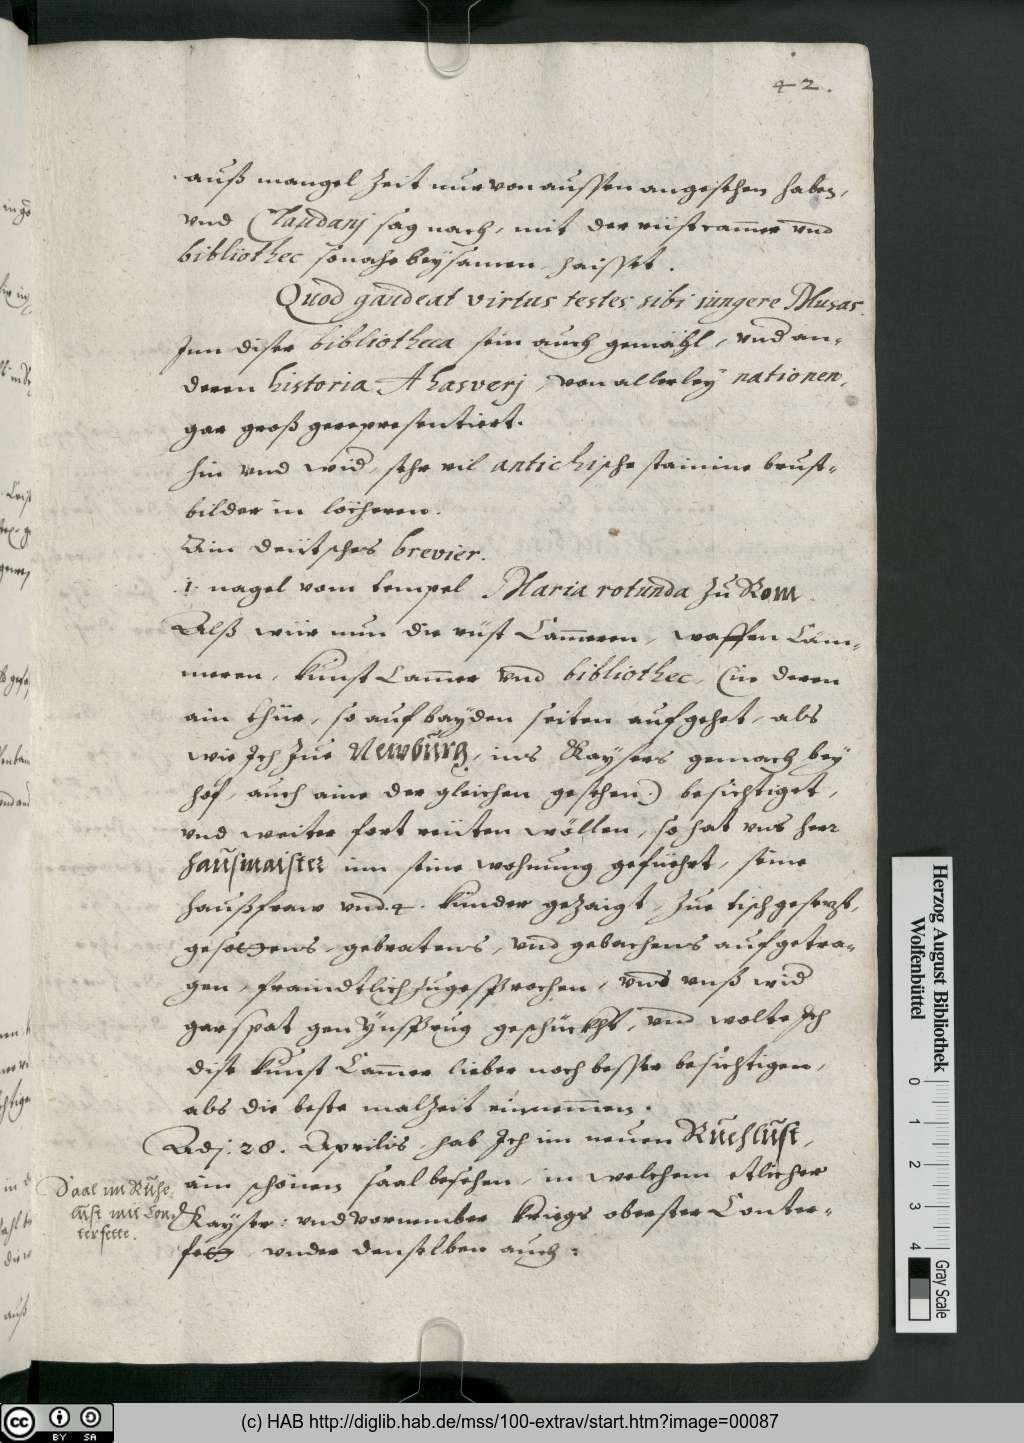 42.
auß mangel Zeit nur von aussen angesehen haben,
vnd Claudanj sag nach, mit der rüstcam̄er vnd
bibliothec so nahe beysamen haisset.
Quod gaudeat virtus testes sibi iungere Musas.
Inn diser bibliotheca sein auch gemähl, vnd an-
deren historia Ahasverj, von allerley nationen,
gar groß gerepresentiert.
hin vnd wid, sehr vil antichische stainine brust-
bilder in löcheren.
Ain deütsches brevier.
1. nagel vom tempel Maria rotunda zu Rom.
Alß wür nun die rüst Cam̄eren, waffen Cam-
meren, kunst Cam̄er vnd bibliothec, (in deren
ain thür, so auf bayden seiten aufgehet, als
wie Ich zue Newburg, ins Kaysers gemach bey
hof, auch aine der gleichen gesehen) besichtiget,
vnd weiter fort reiiten wöllen, so hat vns herr
hausmaister inn seine wohnung gefüehrt, seine
haußfraw vnd 4. kinder gezaigt, zue tisch gesetzt,
gesottens, gebratens, vnd gebachens aufgetra-
gen, fraindtlich zugesprochen, vnd vnß wid
gar spat gen Ynsprug geschückht, vnd wolte Ich
dise kunst Cam̄er lieber noch besser besichtigen,
als die beste malzeit einnem̄en.
Adj. 28. Aprilis, hab Ich im neuen Ruehlust,
ain schönen saal besehen, in welchem etlicher
Kayser: vnd vornember kriegs obersten Conter-
fett, vnder denselben auch:
Saal im Ruhe
lust mit Con
terfette.
Herzog August Bibliothek
Wolfenbüttel
0 1 2 3 4
Gray Scale
cc BY SA
(c) HAB http://diglib.hab.de/mss/100-extrav/start.htm?image=00087